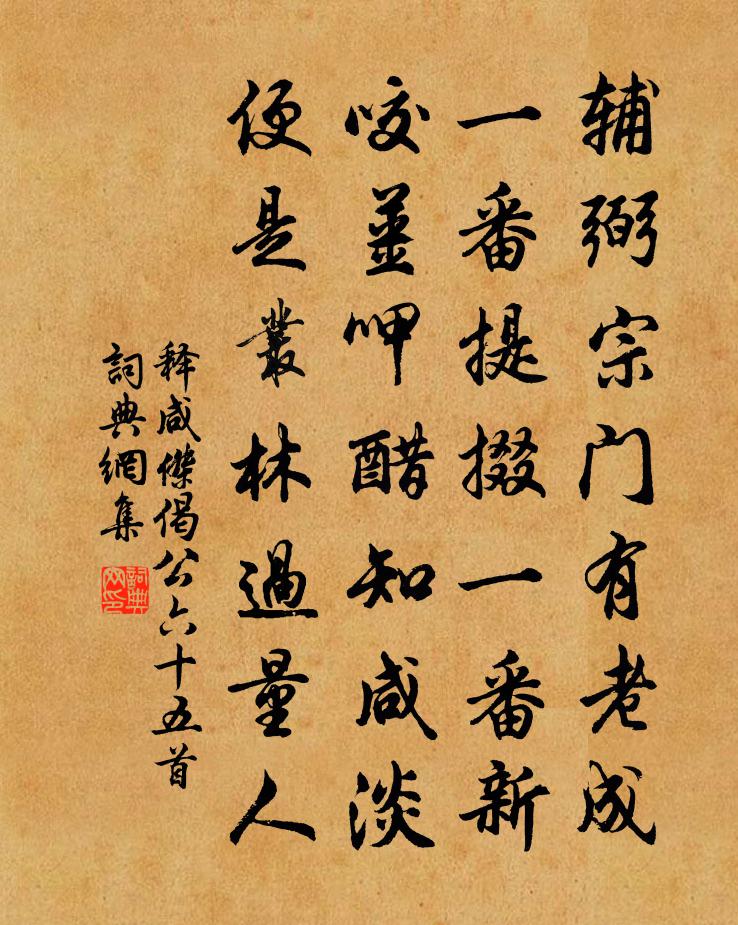 辅弼宗门有老成
一番提掇一番新
咬薑呷醋知咸淡
便是叢林過量人
释咸傑偈公六十五首
詞典網集
詞典网印